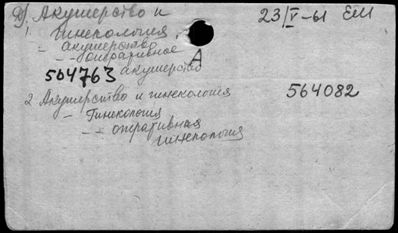 Д) Акушерство и 23/V-61 ЕМ
1. гинекология,
- акушерство
- - оперативное
564763 акушерство
А
2 Акушерство и гинекология 564082
- Гинекология
- - оперативная
гинекология